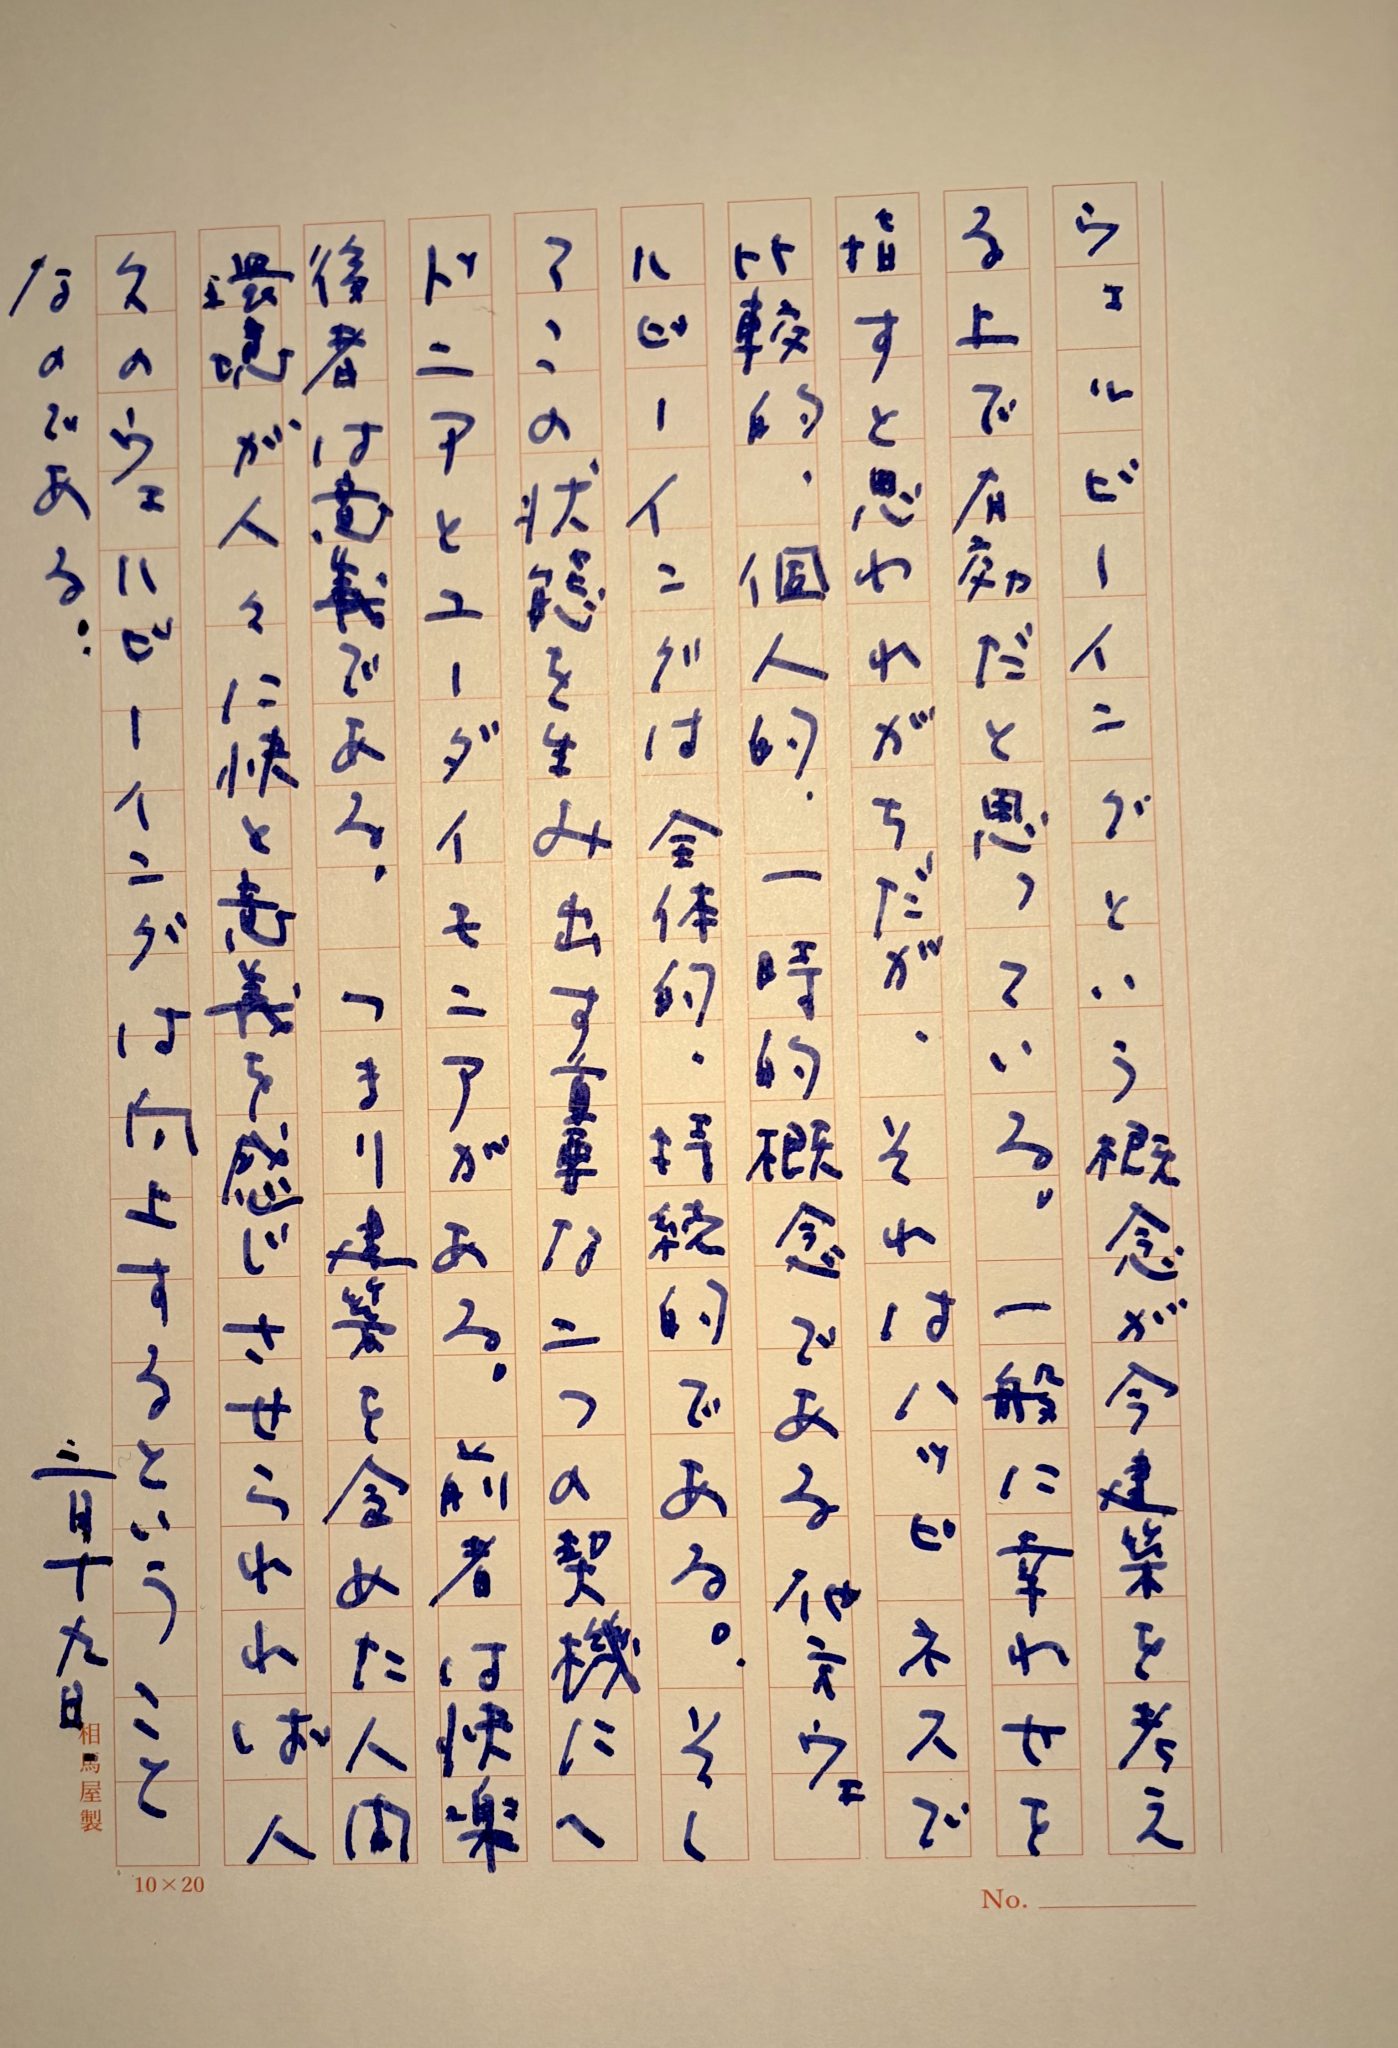 ウェルビーイングという概念が今建築を考え
る上で有効だと思っている。一般に幸わせを
指すと思われがちだが、それはハッピネスで
比較的、個人的、一時的概念である他方ウェ
ルビーイングは全体的、持続的である。そし
てこの状態を生み出す重要な二つの契機にヘ
ドニアとユーダイモニアがある。前者は快楽
後者は意義である。つまり建築を含めた人間
環境が人々に快と意義を感じさせられれば人
々のウェルビーイングは向上するということ
なのである。
三月十九日
相馬屋製
10×20
No.